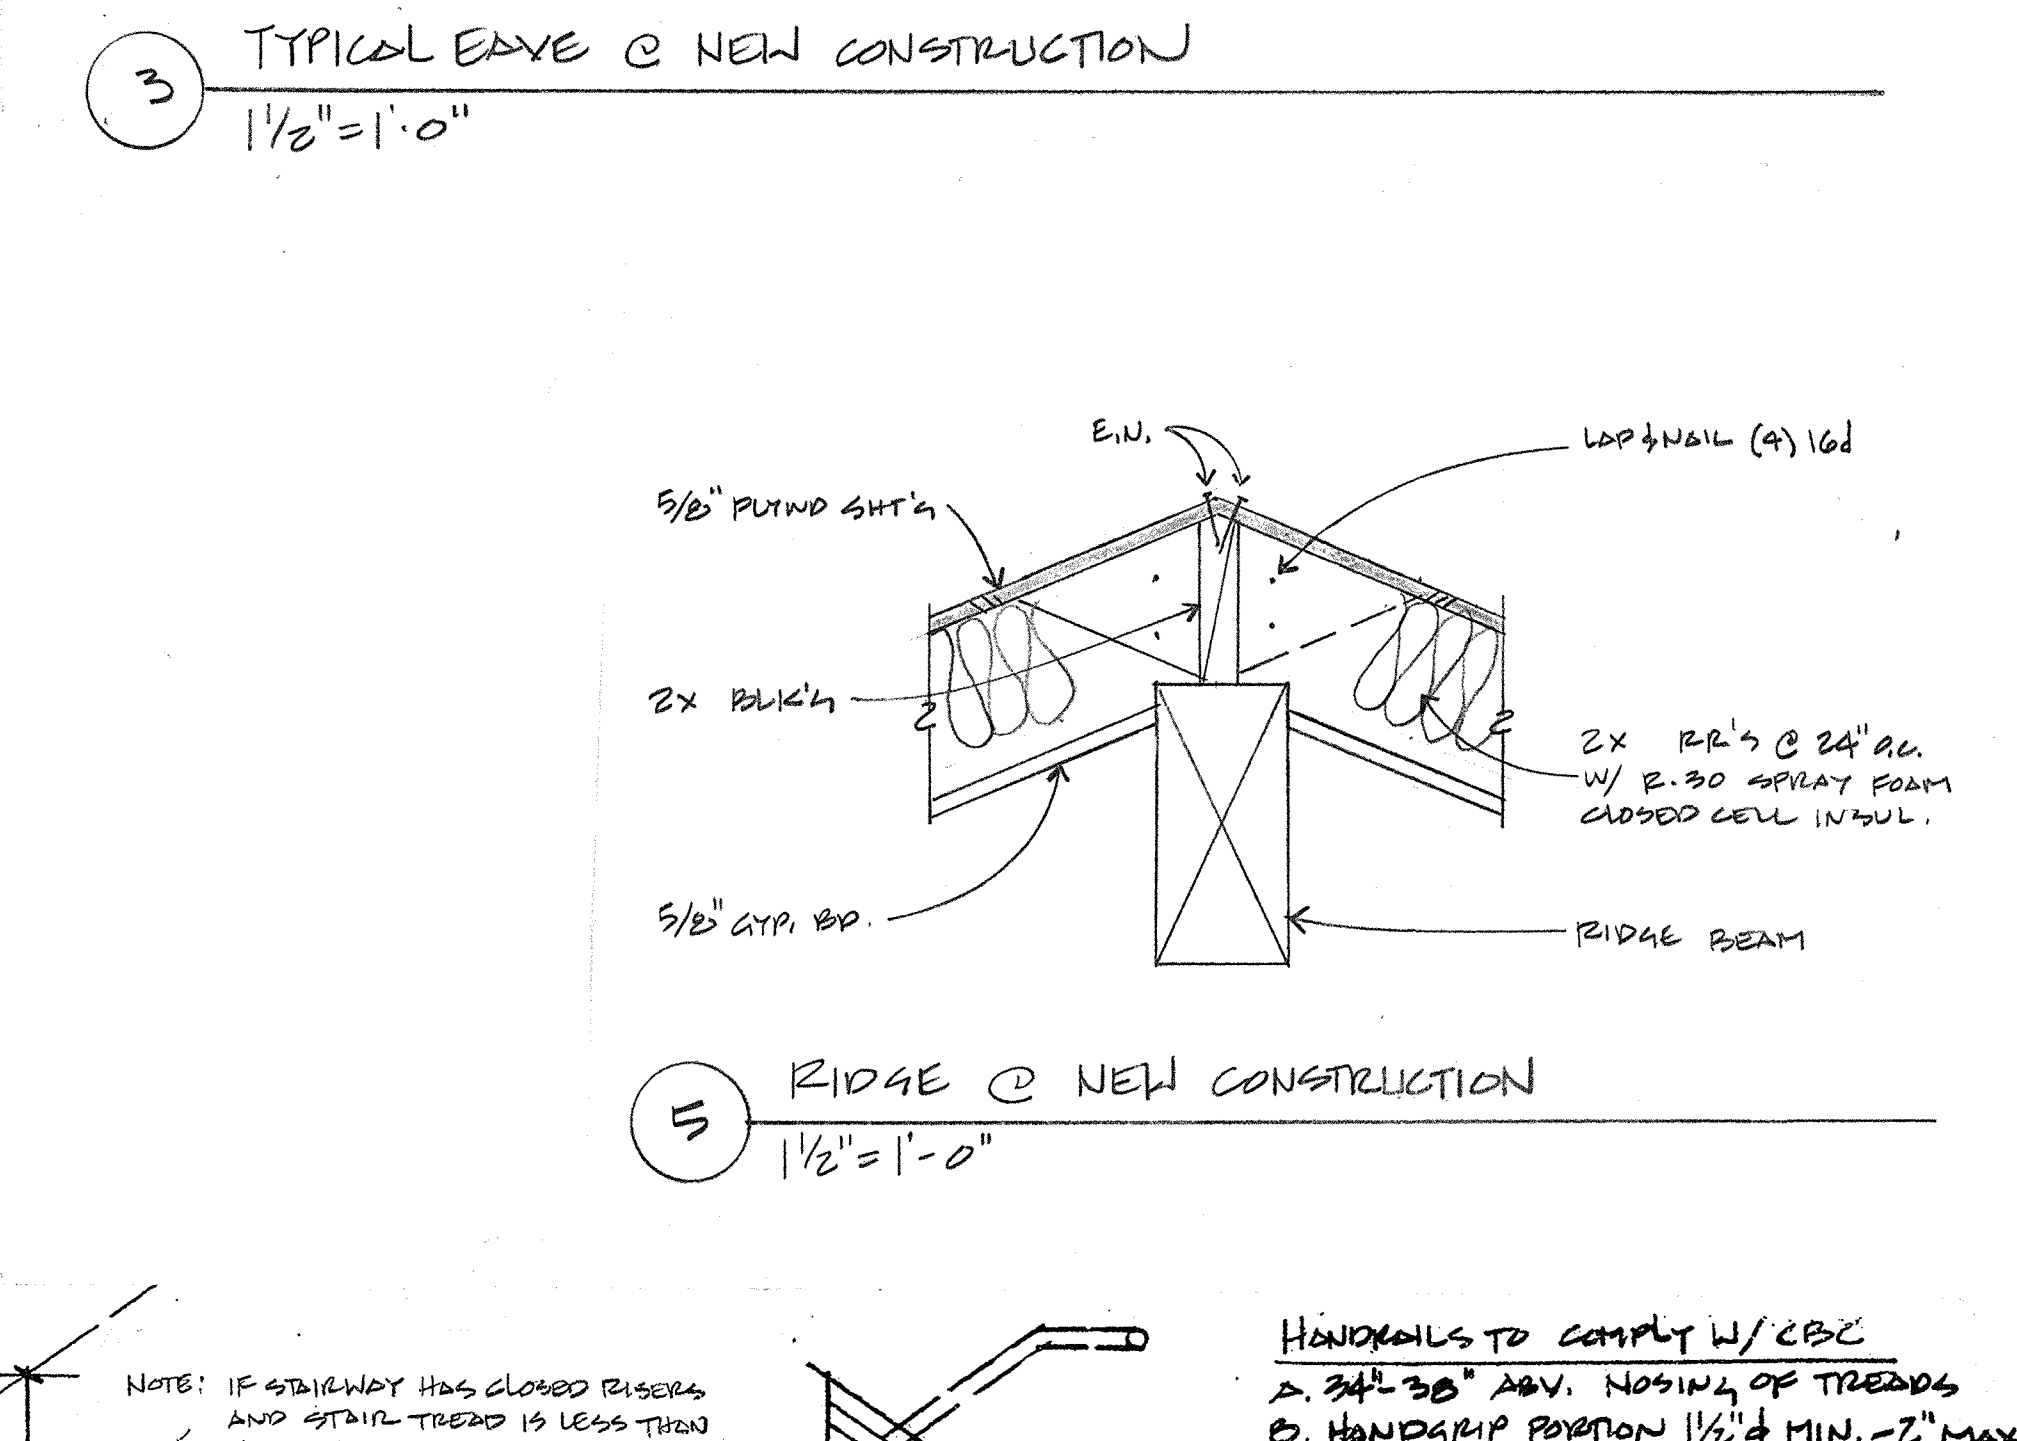 3
TYPICAL EAVE @ NEW CONSTRUCTION
1 1/2" = 1'-0"
E.N.
LAP & NAIL (4) 16d
5/8" PLYWD SHT'G
2X BLK'G
2X RR'S @ 24" O.C.
W/ R-30 SPRAY FOAM
CLOSED CELL INSUL.
5/8" GYP. BD.
RIDGE BEAM
5
RIDGE @ NEW CONSTRUCTION
1 1/2" = 1'-0"
NOTE: IF STAIRWAY HAS CLOSED RISERS
AND STAIR TREAD IS LESS THAN
HANDRAILS TO COMPLY W/ CBC
A. 34"-38" ABV. NOSING OF TREADS
B. HANDGRIP PORTION 1 1/2" ⌀ MIN. - 2" MAX